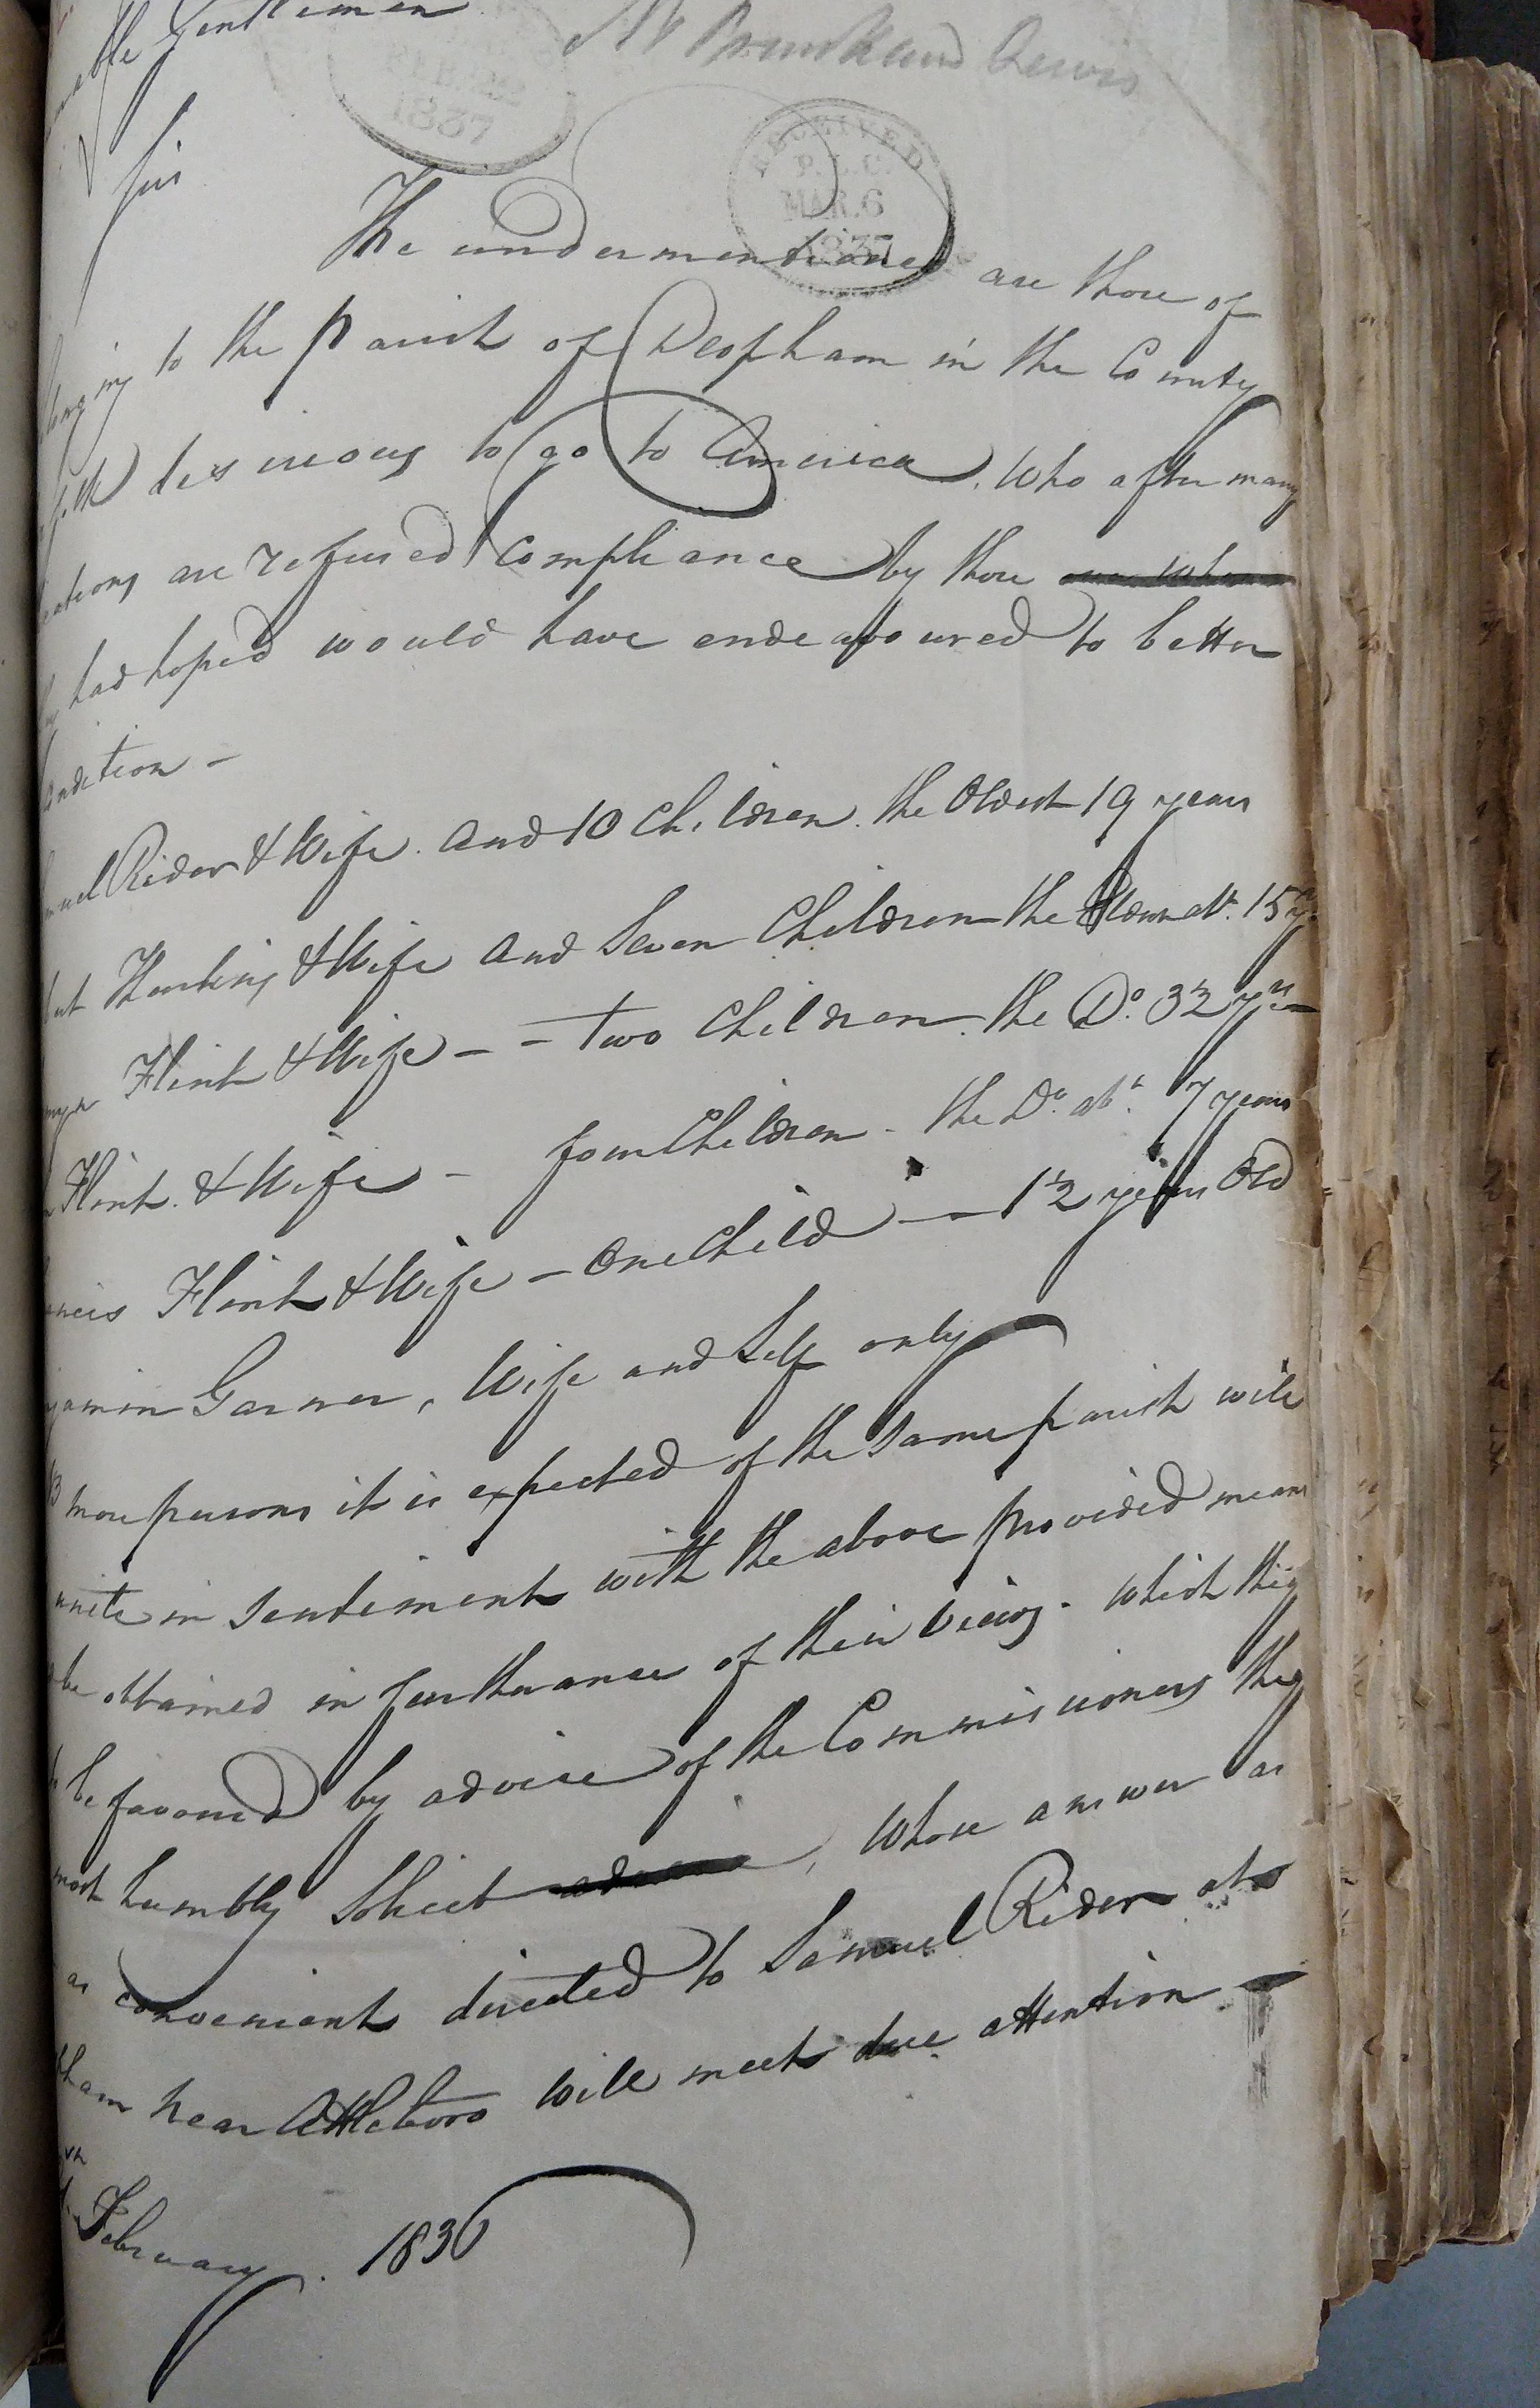 Gentlemen
Sir
FEB 22
1837
RECEIVED
P.L.C.
MAR. 6
1837
The undermentioned are those of
to the Parish of Deopham in the County
desireous to go to America, Who after many
are refused Compliance by those
had hoped would have endeavoured to better
Condition -
Rider & Wife. and 10 Children. the Oldest 19 years
& Wife and Seven Children the Abt. 15 yrs
Flint & Wife - - Two Children. the Do. 3½ yrs
Flint. & Wife - four Children - the Do. abt. 7 years
Flint & Wife - One Child - 1½ years Old
Garner, Wife and Self only
more persons it is expected of the same parish will
unite in sentiment with the above provided means
be obtained in furtherance of their Views. which they
be favoured by advice of the Commissioners they
most humbly Solicit, Whose answer as
as convenient directed to Samuel Rider at
near Attleboro will meet due attention -
February. 1836